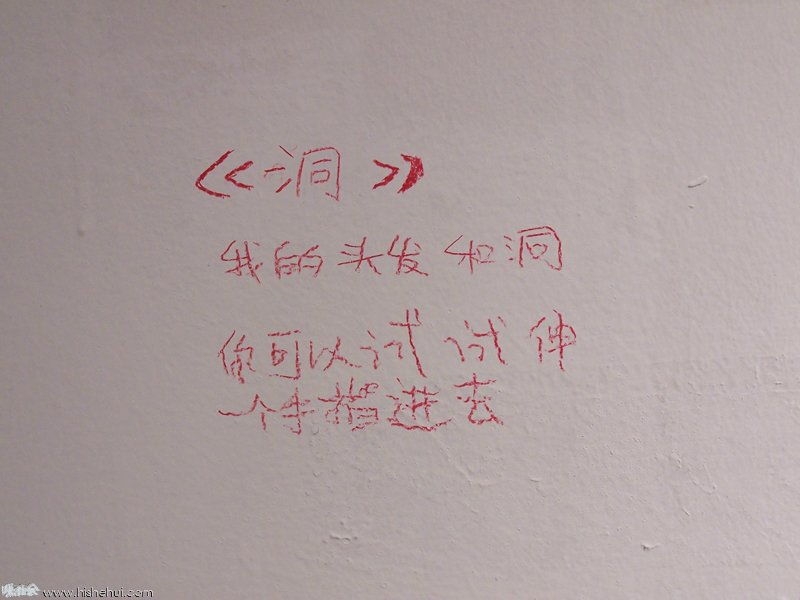 《洞》
我的头发和洞
你可以试试伸
一个手指进去
www.hishehui.com